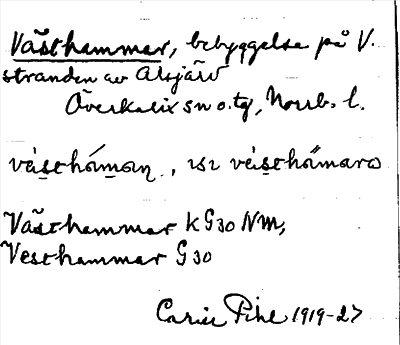 Västhammar, bebyggelse på V.
stranden av Alsjärv
Överkalix sn o. tg, Norrb. l.
Västhammar k G30 NM,
Vesthammar G30
Carin Pihl 1919-27